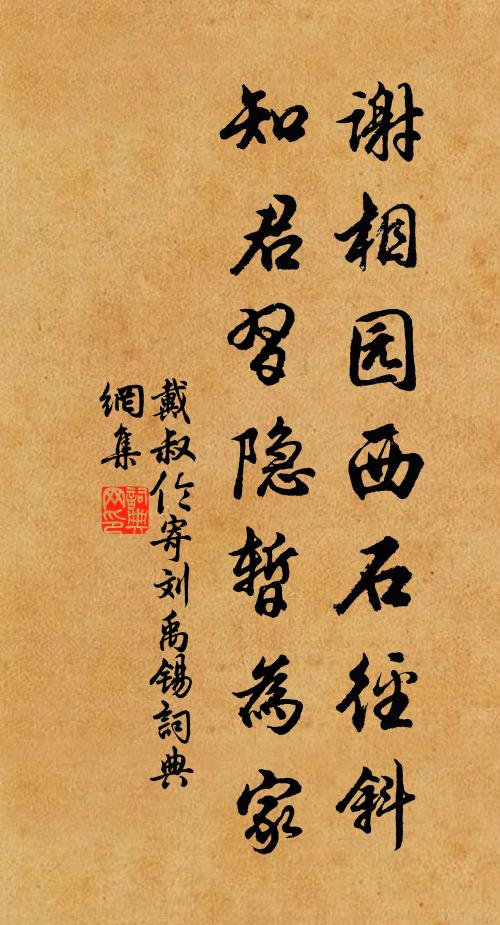 谢相园西石径斜
知君习隐暂为家
戴叔伦寄刘禹锡詞典
網集
詞典网印